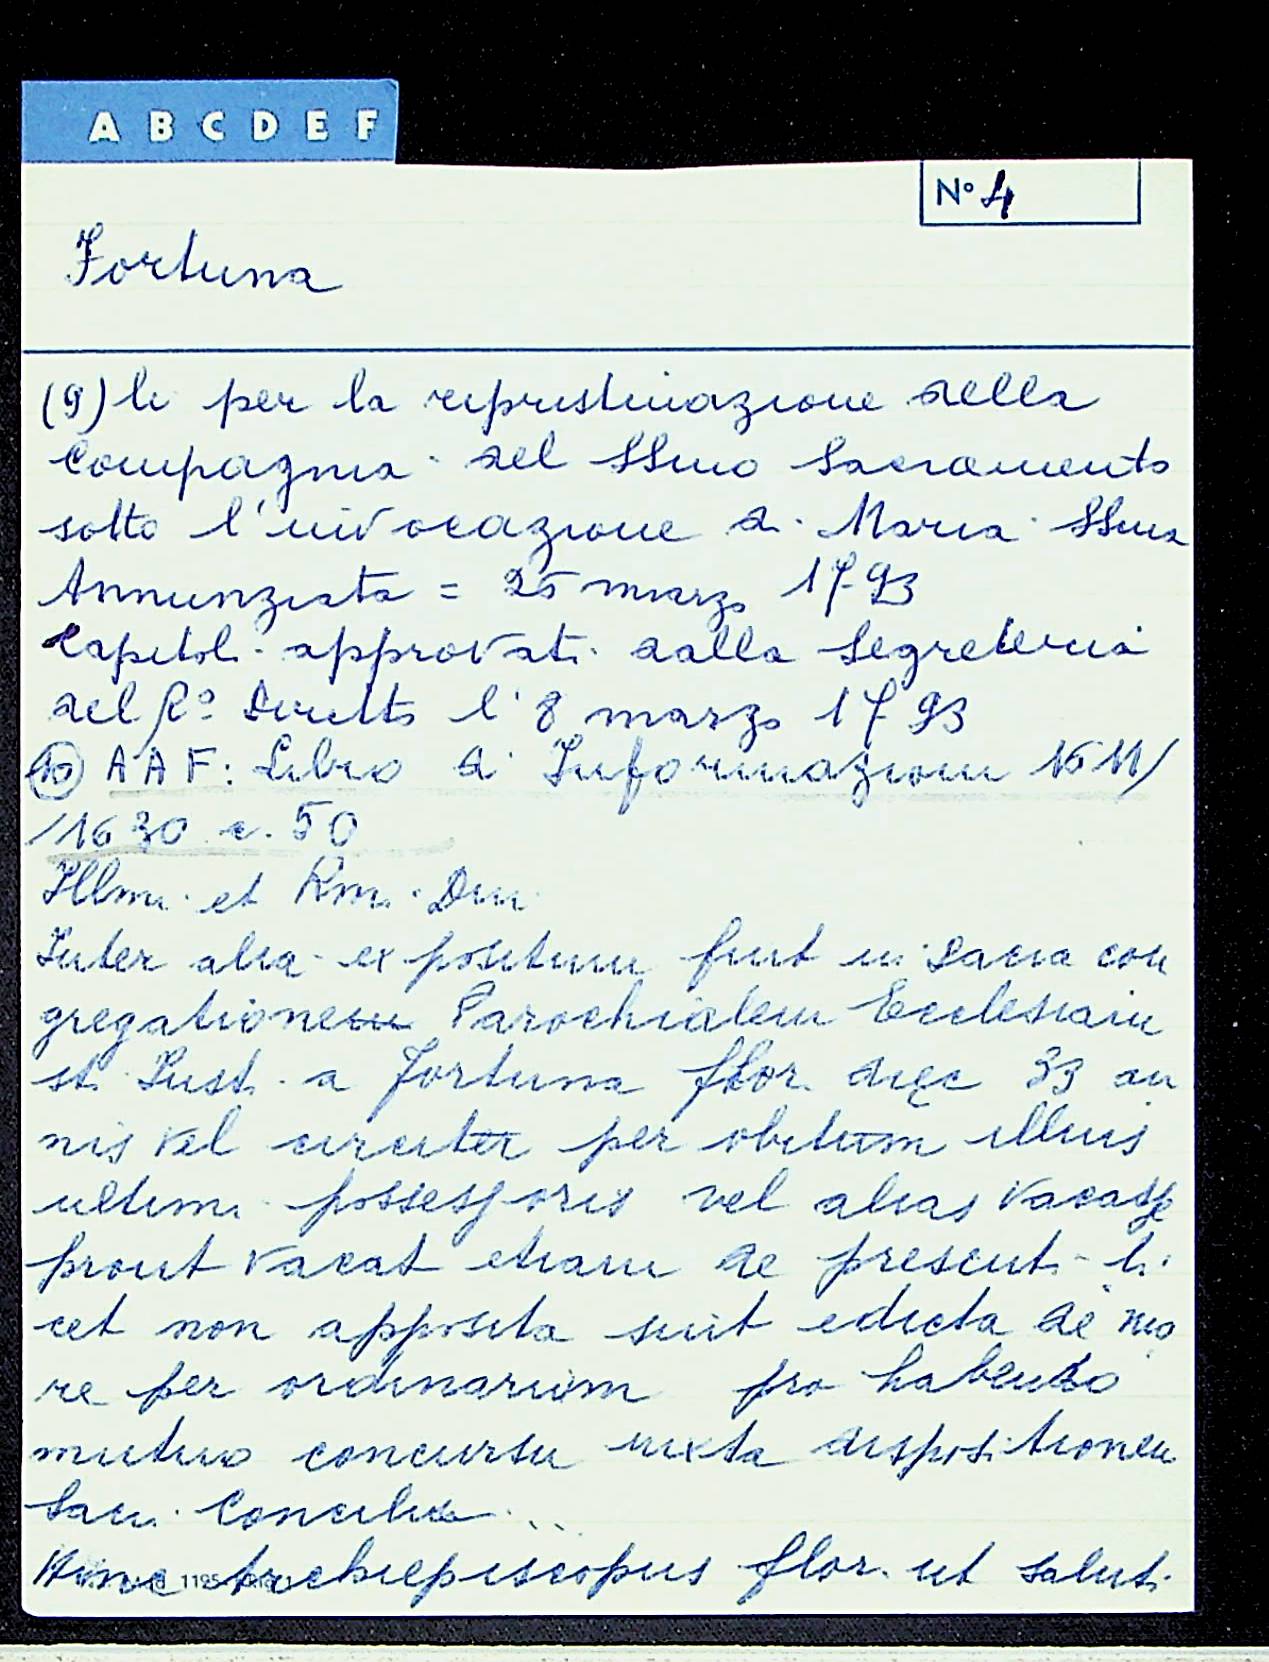 A B C D E F
N° 4
Fortuna
(9) li per la ripristinazione della
Compagnia del SSmo Sacramento
sotto l'invocazione di Maria SSma
Annunziata = 25 marzo 1793
Capitoli approvati dalla Segreteria
del R° Diritto l'8 marzo 1793
(10) AAF: Libro di Informazioni 1611/
/1630 c. 50
Illmi et Rmi Dni
Inter alia expositum fuit in sacra con
gregatione Parochialem Ecclesiam
sti Justi a Fortuna flor. diec 33 an
nis vel circiter per obitum illius
ultimi possessoris vel alias vacasse
prout vacat etiam de presenti li
cet non apposita sint edicta de mo
re per ordinarium pro habendo
mutuo concursu iuxta dispositionem
Sacri Concilii ...
Hinc Archiepiscopus flor. ut saluti